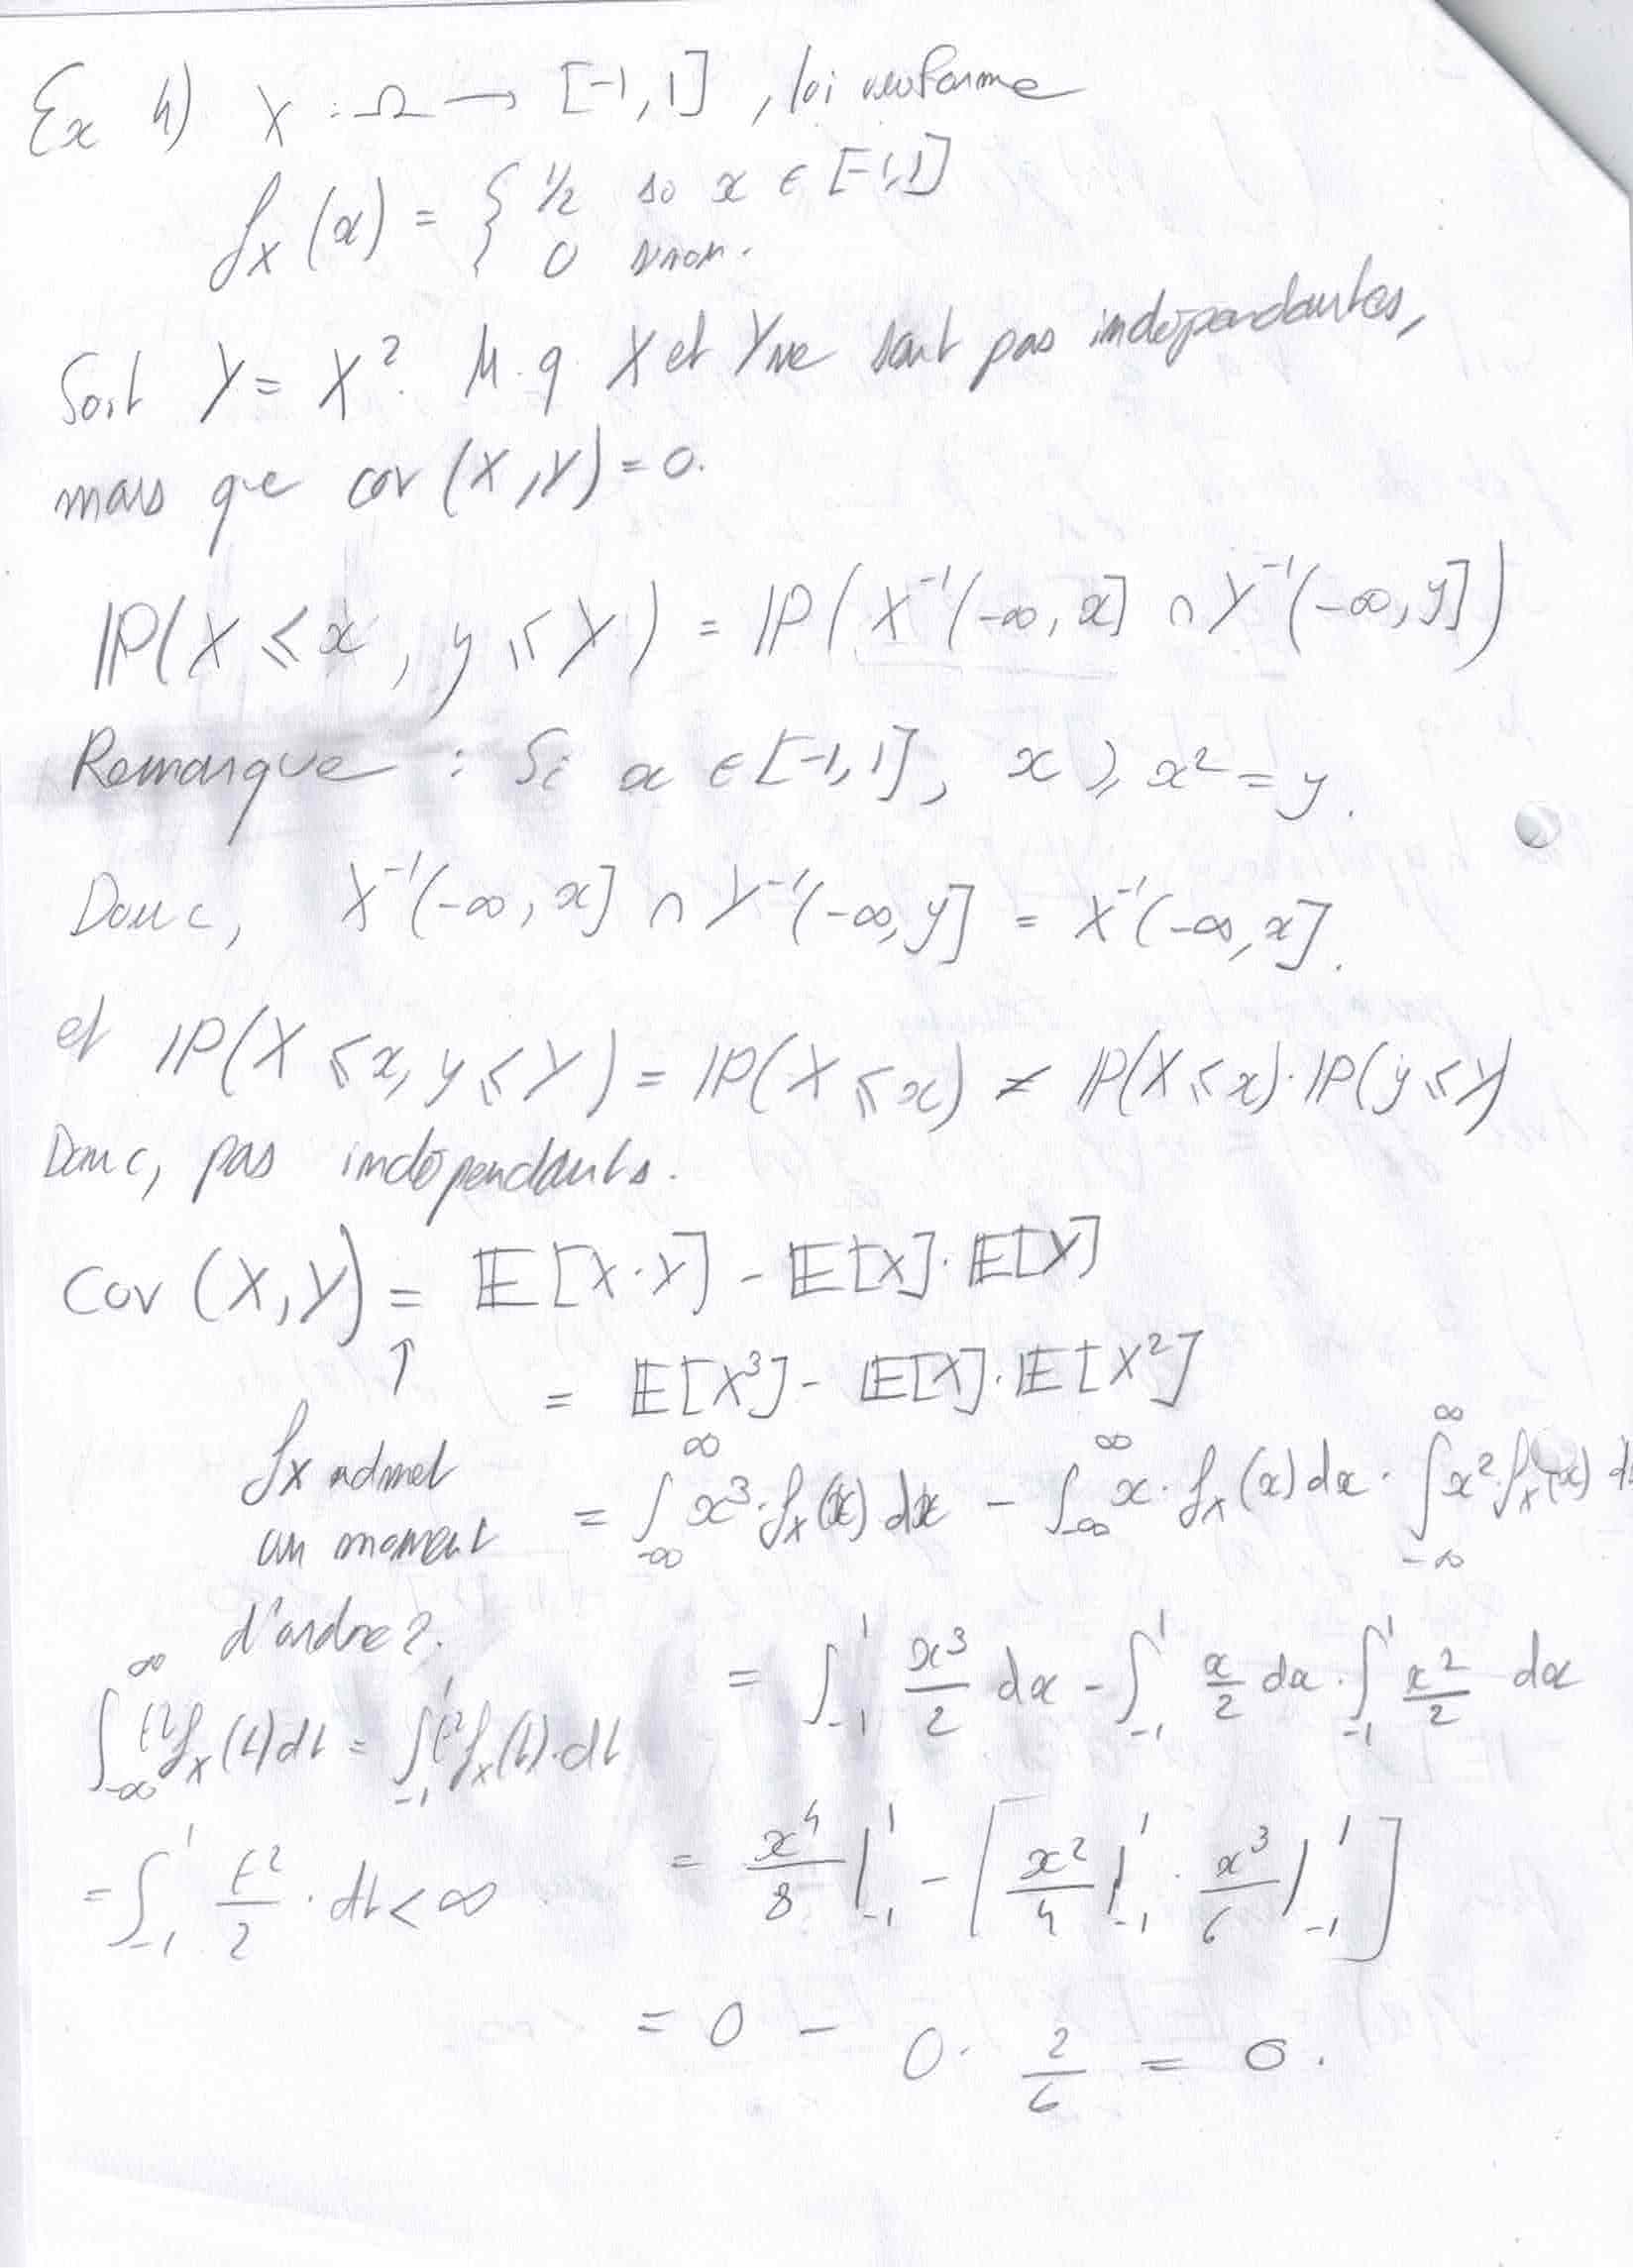 Ex 4) X : Ω → [-1, 1] , loi uniforme
f_X (x) = { 1/2 si x ∈ [-1,1]
0 sinon.
Soit Y = X². M.q X et Y ne sont pas indépendantes,
mais que cov (X,Y) = 0.
ℙ(X ⩽ x , y ⩽ Y) = ℙ(X⁻¹(-∞, x] ∩ Y⁻¹(-∞, y])
Remarque : Si x ∈ [-1,1], x ⩾ x² = y.
Donc, X⁻¹(-∞, x] ∩ Y⁻¹(-∞, y] = X⁻¹(-∞, x].
et ℙ(X ⩽ x, y ⩽ Y) = ℙ(X ⩽ x) ≠ ℙ(X ⩽ x) · ℙ(y ⩽ Y)
Donc, pas indépendants.
Cov (X,Y) = 𝔼[X·Y] - 𝔼[X]·𝔼[Y]
↑
= 𝔼[X³] - 𝔼[X]·𝔼[X²]
f_X admet
un moment
d'ordre 2.
= ∫_{-∞}^{∞} x³·f_X(x) dx - ∫_{-∞}^{∞} x·f_X(x) dx · ∫_{-∞}^{∞} x²·f_X(x) dx
∫_{-∞}^{∞} t² f_X(t) dt = ∫_{-1}^{1} t² f_X(t)·dt
= ∫_{-1}^{1} t²/2 · dt < ∞
= ∫_{-1}^{1} x³/2 dx - ∫_{-1}^{1} x/2 dx · ∫_{-1}^{1} x²/2 dx
= x⁴/8 |_{-1}^{1} - [ x²/4 |_{-1}^{1} · x³/6 |_{-1}^{1} ]
= 0 - 0 · 2/6 = 0.